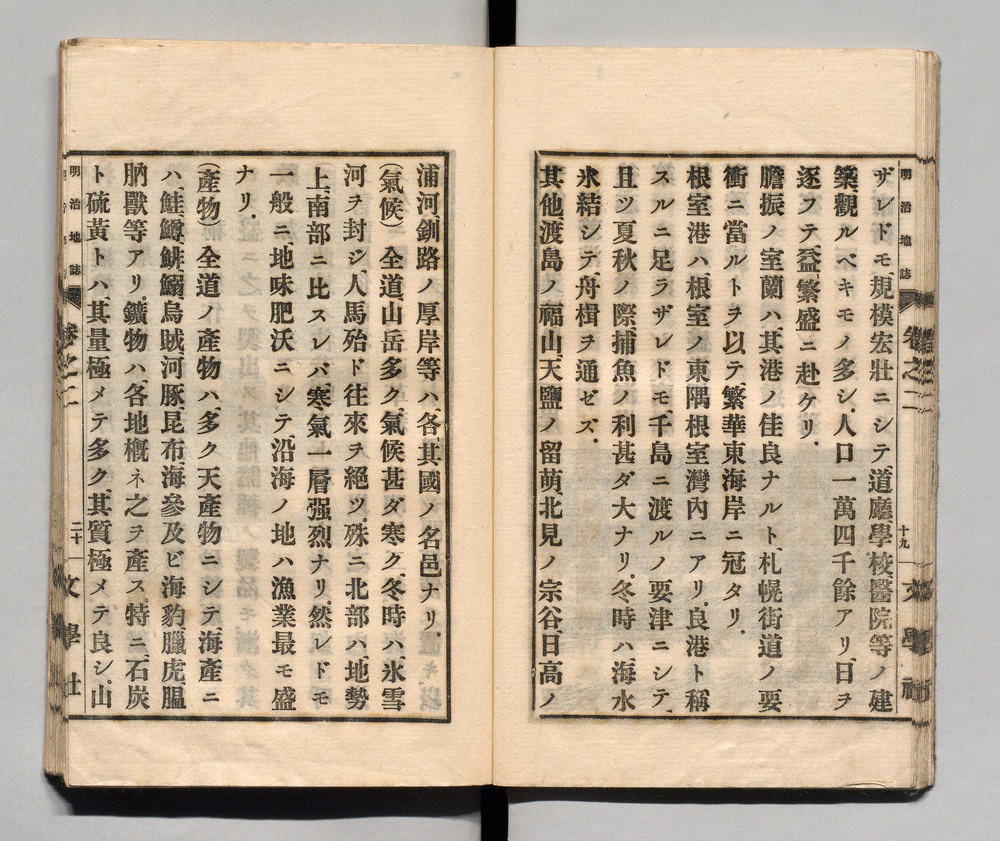 明治地誌 卷之二 十九 文學社
ザレドモ、規模宏壯ニシテ、道廳、學校、醫院等ノ建
築、觀ルベキモノ多シ、人口一萬四千餘アリ、日ヲ
逐フテ、益、繁盛ニ赴ケリ、
膽振ノ室蘭ハ、其港ノ佳良ナルト、札幌街道ノ要
衝ニ當ルトヲ以テ、繁華東海岸ニ冠タリ、
根室港ハ、根室ノ東隅、根室灣內ニアリ、良港ト稱
スルニ足ラザレドモ、千島ニ渡ルノ要津ニシテ、
且ツ夏秋ノ際、捕魚ノ利甚ダ大ナリ、冬時ハ、海水
氷結シテ、舟楫ヲ通ゼズ、
其他、渡島ノ福山、天鹽ノ留萌、北見ノ宗谷、日高ノ
浦河、釧路ノ厚岸等ハ、各、其國ノ名邑ナリ、
(氣候) 全道、山岳多ク、氣候甚ダ寒ク、冬時ハ、氷雪
河ヲ封ジ、人馬殆ド往來ヲ絕ツ、殊ニ北部ハ、地勢
上、南部ニ比スレバ、寒氣一層强烈ナリ、然レドモ
一般ニ、地味肥沃ニシテ、沿海ノ地ハ漁業最モ盛
ナリ、
(產物) 全道ノ產物ハ、多ク天產物ニシテ、海產ニ
ハ、鮭、鱒、鯡、鰯、烏賊、河豚、昆布、海參及ビ海豹、臘虎、膃
肭獸等アリ、鑛物ハ、各地槪ネ之ヲ產ス、特ニ、石炭
ト硫黃トハ、其量極メテ多ク、其質極メテ良シ、山
明治地誌 卷之二 二十 文學社